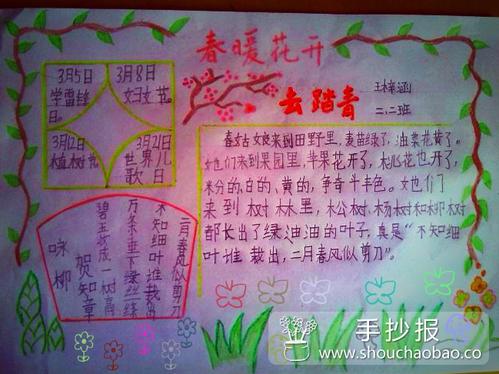 春暖花开
去踏青
王梓涵
二.二班
3月5日
学雷锋
日。
3月8日
妇女节。
3月12日
植树节
3月21日
世界儿
歌日
咏柳
贺知章
碧玉妆成一树高
万条垂下绿丝绦
不知细叶堆裁出
二月春风似剪刀
春姑娘来到田野里,麦苗绿了,油菜花黄了。
她们来到果园里,苹果花开了,桃花也开了,
粉的、白的、黄的,争奇斗艳。她们
来到树林里,松树杨树和柳树
都长出了绿油油的叶子,真是“不知细
叶堆裁出,二月春风似剪刀》。
手抄报
www.shouchaobao.co